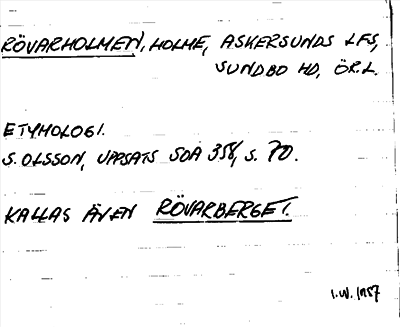 RÖVARHOLMEN, HOLME, ASKERSUNDS LFS,
SUNDBO HD, ÖR.L.
ETYMOLOGI.
S. OLSSON, UPPSATS SOA 356, S. 70.
KALLAS ÄVEN RÖVARBERGET.
I.W. 1957